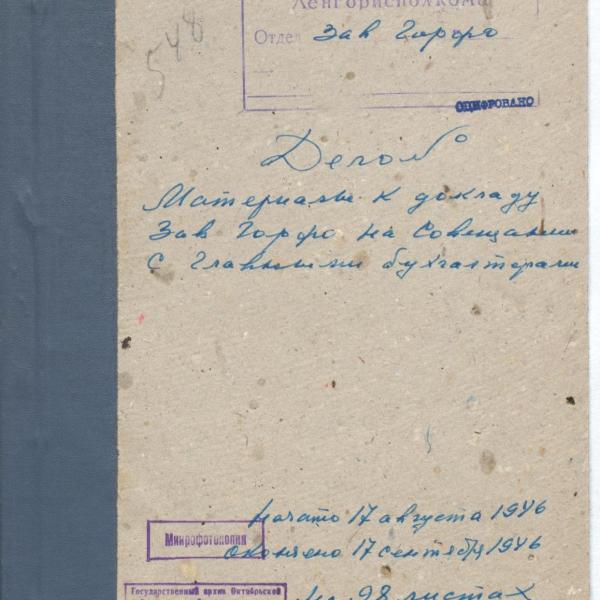 Ленгорисполкома
548
Отдел Зав Горфо
ОЦИФРОВАНО
Дело №
Материалы к докладу
Зав Горфо на Совещании
с Главными бухгалтерами
Начато 17 августа 1946
Микрофотокопия
Окончено 17 сентября 1946
Государственный архив Октябрьской
На 98 листах